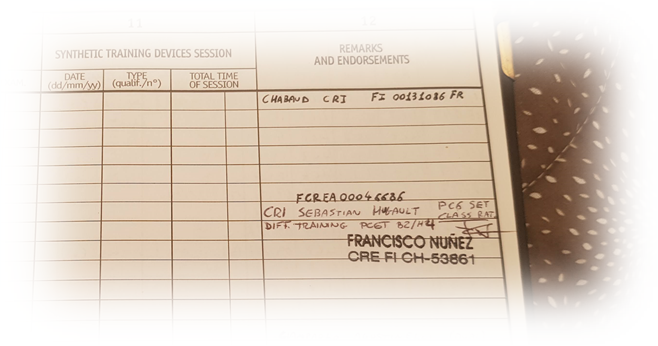 11
12
SYNTHETIC TRAINING DEVICES SESSION
REMARKS
AND ENDORSEMENTS
DATE
(dd/mm/yy)
TYPE
(qualif./n°)
TOTAL TIME
OF SESSION
CHABAUD CRI FI 00131086 FR
FCREA00046636
CRI SEBASTIAN PC6 SET
CLASS RAT.
DIFF. TRAINING PCET 32/H4
FRANCISCO NUÑEZ
CRE FI CH-53861